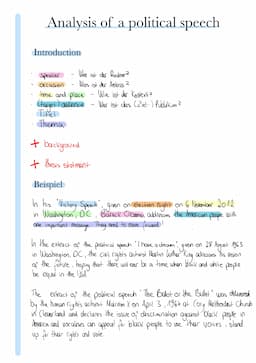 Analysis of a political speech
Introduction
· speaker - Wer ist der Redner?
· occasion - Was ist der Anlass?
· time and place - Wie ist der Kontext?
· target audience - Wer ist das (Ziel-) Publikum?
· Titel
· Thema
+ background
+ thesis statement
Beispiel
In his "Victory Speech", given on election night on 6 November 2012
in Washington, DC, Barack Obama addresses the American people with
one important message: They need to move forward!
In the extract of the political speech "I have a dream", given on 28 August 1963
in Washington, DC, the civil rights activist Martin Luther King addresses his vision
of the future, hoping that there will be a time when black and white people
be equal in the USA.
The extract of the political speech "The Ballot or the Bullet" was delivered
by the human rights activist Malcolm X on April 3, 1964 at Cory Methodist Church
in Cleveland and declares the issue of discrimination against black people in
America and
appeal for black people to use their voices, stand
up for their rights and vote.